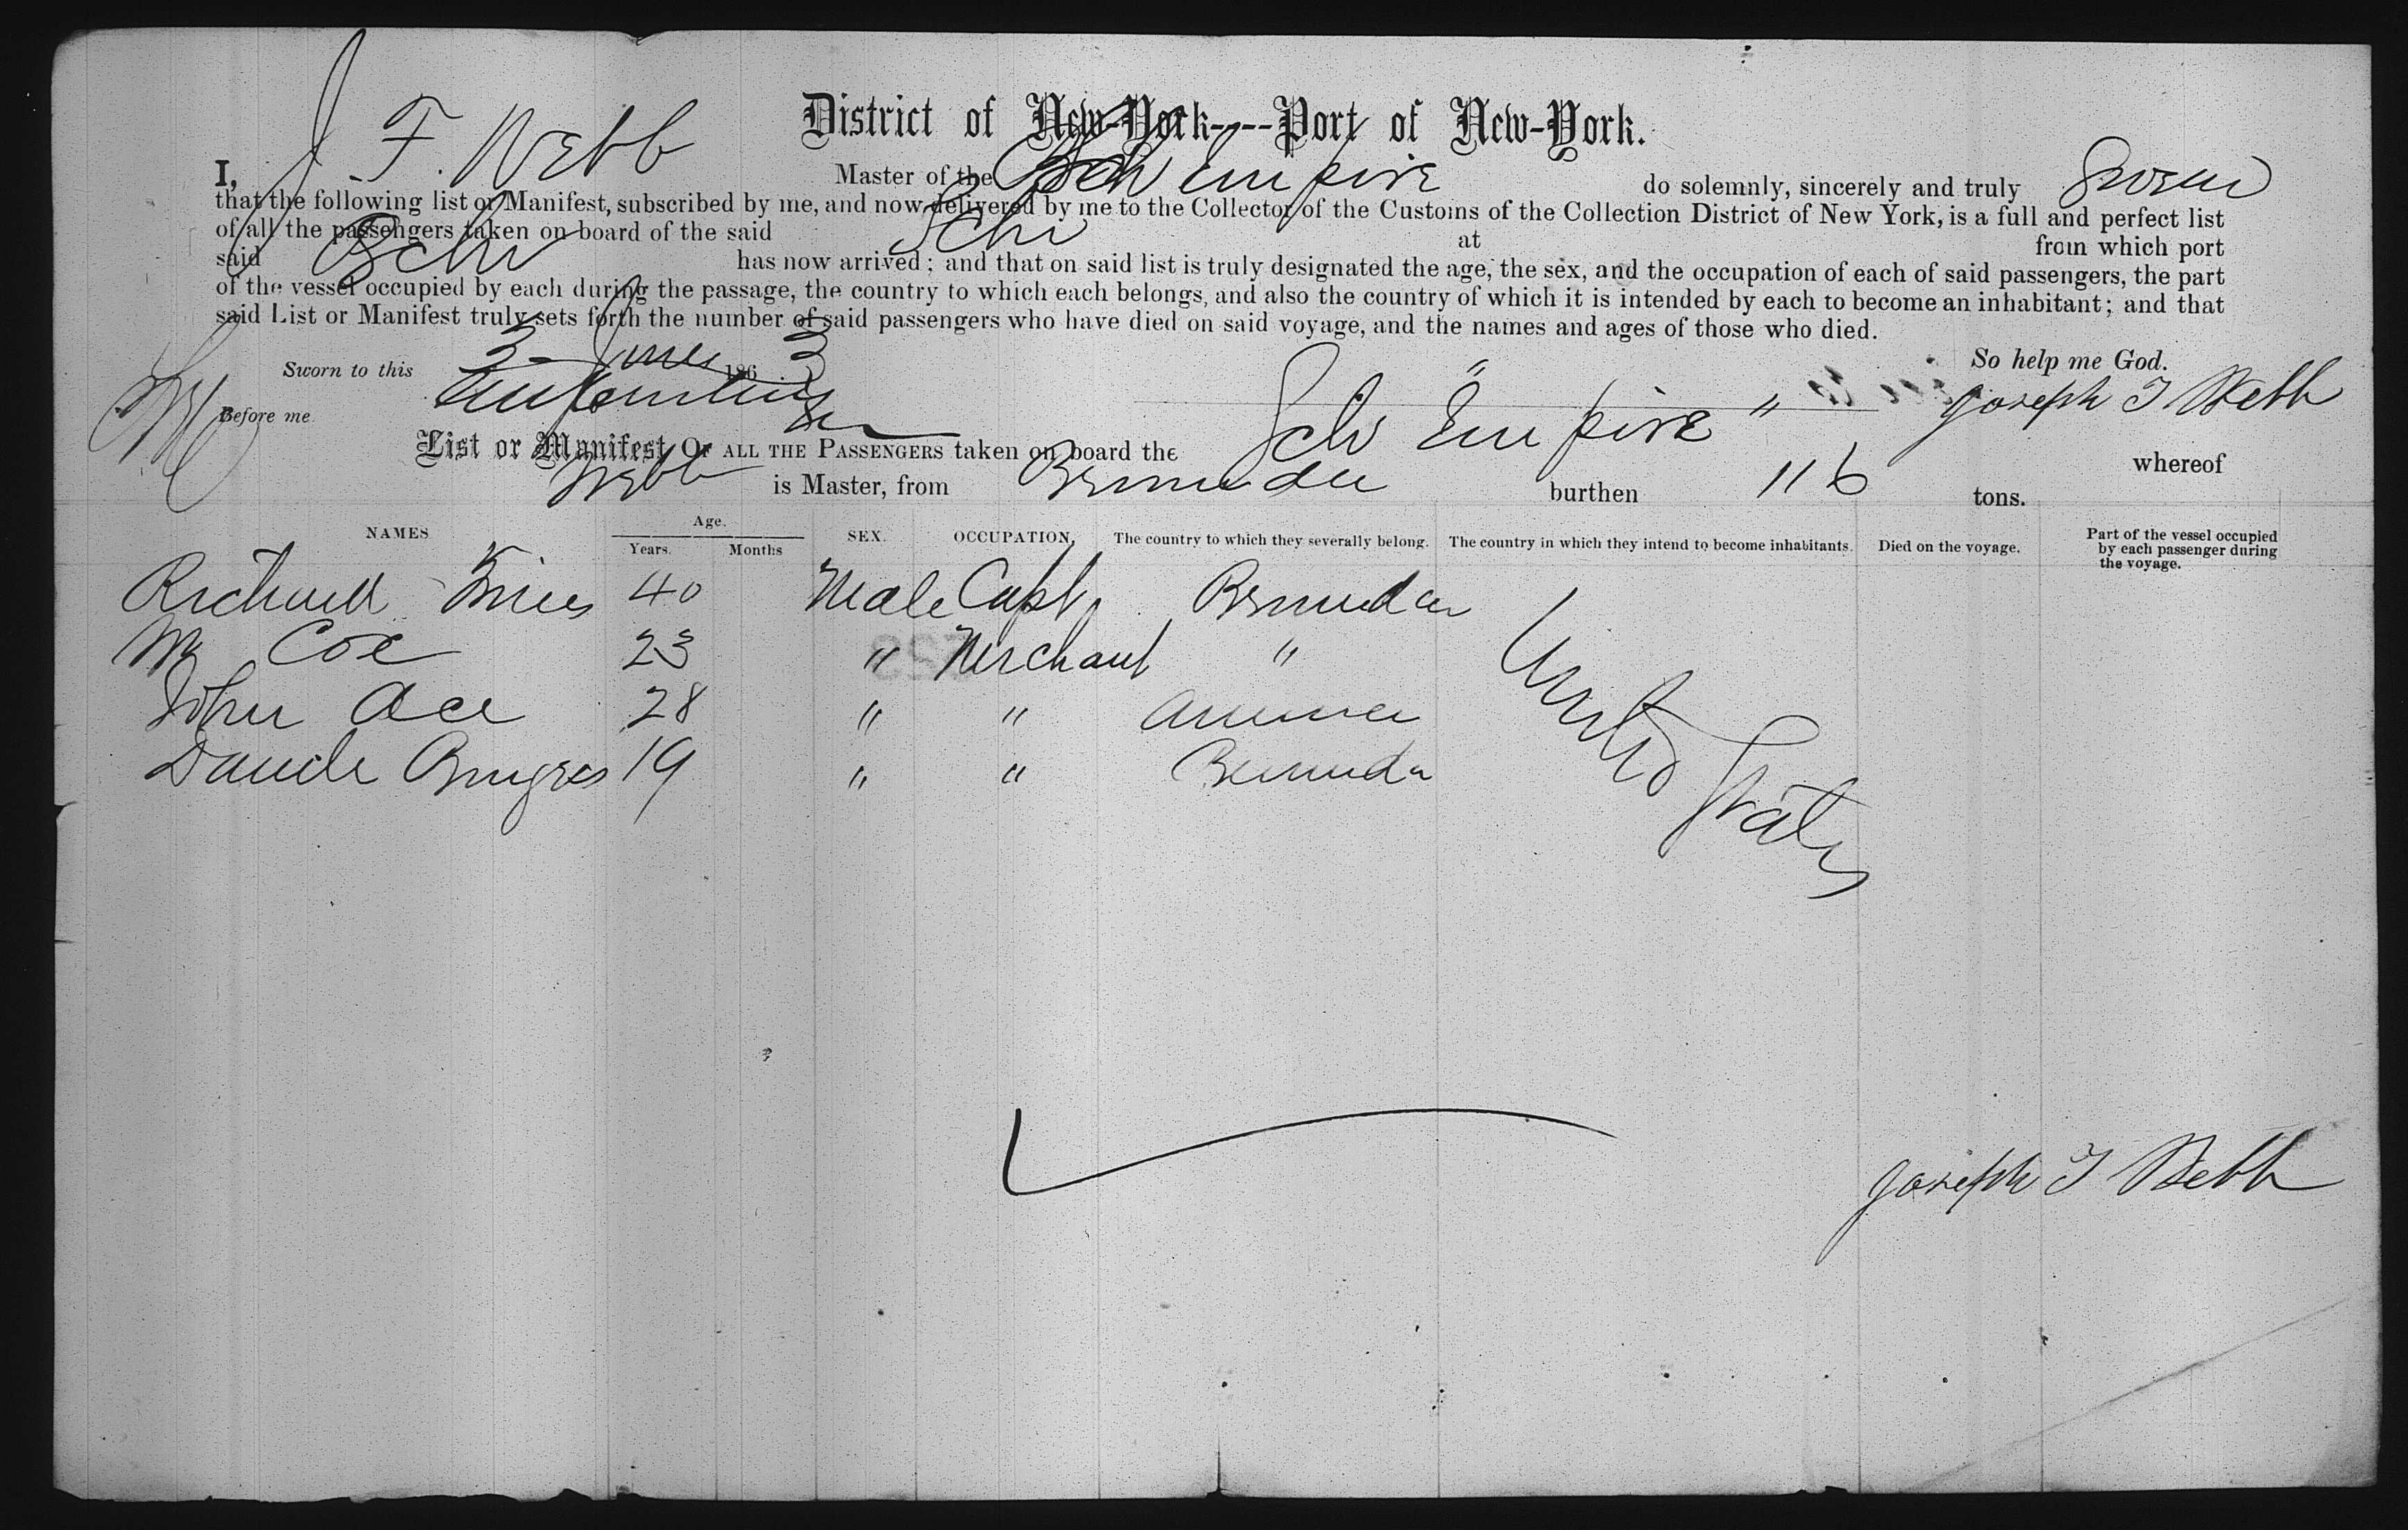 District of New-York----Port of New-York.
I, J. F. Webb Master of the Sch Empire do solemnly, sincerely and truly Swear
that the following list or Manifest, subscribed by me, and now delivered by me to the Collector of the Customs of the Collection District of New York, is a full and perfect list
of all the passengers taken on board of the said Sch at from which port
said Sch has now arrived; and that on said list is truly designated the age, the sex, and the occupation of each of said passengers, the part
of the vessel occupied by each during the passage, the country to which each belongs, and also the country of which it is intended by each to become an inhabitant; and that
said List or Manifest truly sets forth the number of said passengers who have died on said voyage, and the names and ages of those who died.
So help me God.
Sworn to this 3 June 1863
Joseph T Webb
Before me
List or Manifest OF ALL THE PASSENGERS taken on board the Sch "Empire" whereof
Webb is Master, from Bermuda burthen 116 tons.
NAMES Age. Years. Months SEX. OCCUPATION, The country to which they severally belong. The country in which they intend to become inhabitants. Died on the voyage. Part of the vessel occupied by each passenger during the voyage.
Richard 40 Male Capt Bermuda
Wm Coe 23 " Merchant "
John Ace 28 " " America
19 " " Bermuda
United States
Joseph T Webb